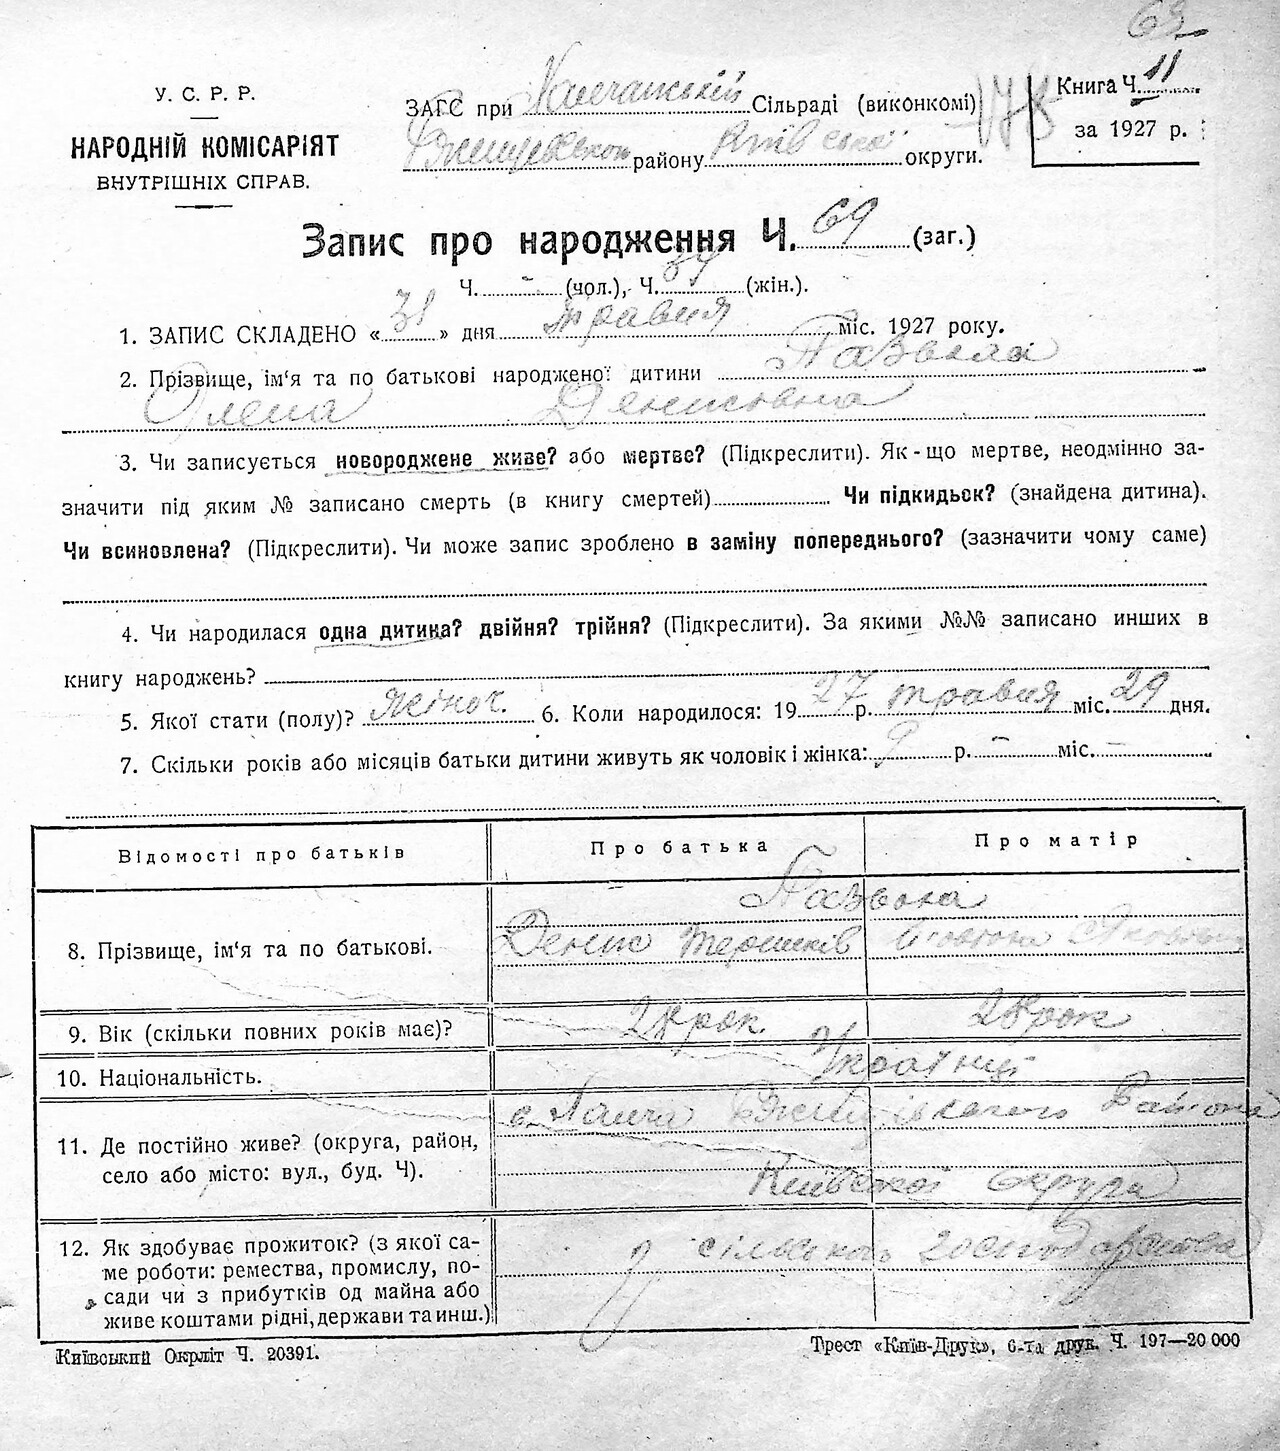 69
У. С. Р. Р.
НАРОДНІЙ КОМІСАРІЯТ
ВНУТРІШНІХ СПРАВ.
ЗАГС при Сільраді (виконкомі)
району Київської округи.
Книга Ч. 11
за 1927 р.
Запис про народження Ч. 69 (заг.)
Ч. - (чол.), Ч. 37 (жін.).
1. ЗАПИС СКЛАДЕНО «31» дня травня міс. 1927 року.
2. Прізвище, ім‘я та по батькові народженої дитини
Олена Денисовна
3. Чи записується новороджене живе? або мертве? (Підкреслити). Як-що мертве, неодмінно за-
значити під яким № записано смерть (в книгу смертей) Чи підкидьок? (знайдена дитина).
Чи всиновлена? (Підкреслити). Чи може запис зроблено в заміну попереднього? (зазначити чому саме)
4. Чи народилася одна дитина? двійня? трійня? (Підкреслити). За якими №№ записано инших в
книгу народжень?
5. Якої стати (полу)? жіноч. 6. Коли народилося: 1927 р. травня міс. 29 дня.
7. Скільки років або місяців батьки дитини живуть як чоловік і жінка: 9 р. - міс. -
Відомості про батьків Про батька Про матір
8. Прізвище, ім‘я та по батькові.
Денис
9. Вік (скільки повних років має)? 28 рок. 28 рок
10. Національність. Українці
11. Де постійно живе? (округа, район,
село або місто: вул., буд. Ч).
с. Района
Київської округи
12. Як здобуває прожиток? (з якої са-
ме роботи: ремества, промислу, по-
сади чи з прибутків од майна або
живе коштами рідні, держави та инш.)
З сільського господарства
Київський Окрліт Ч. 20391.
Трест «Київ-Друк», 6-та друк. Ч. 197—20 000